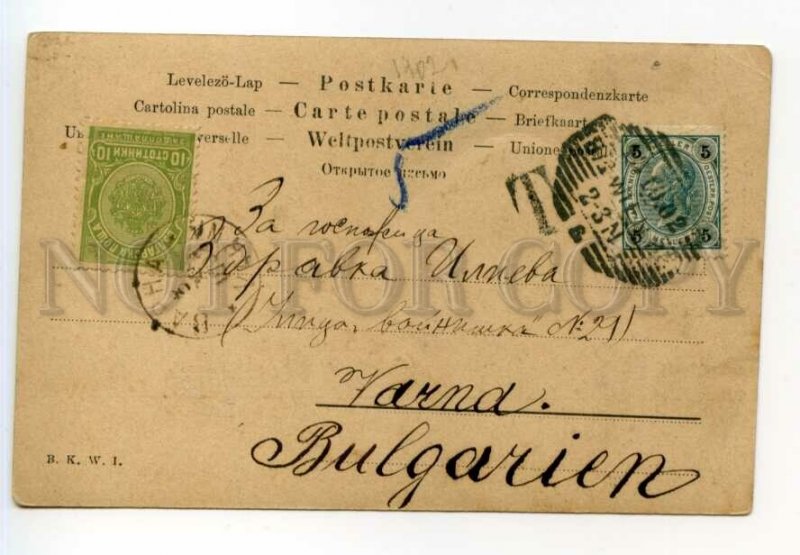 1902
Levelező-Lap — Postkarte — Correspondenzkarte
Cartolina postale — Carte postale — Briefkaart
verselle — Weltpostverein — Union postale
Открытое письмо
10 СТОТИНКИ 10
5 5
5 5
T
WIEN
2-3 N
ВАРНА
За госпожица
Здравка Илиева
(Улица „войнишка" № 21)
Varna.
Bulgarien
B. K. W. I.
NOT FOR COPY